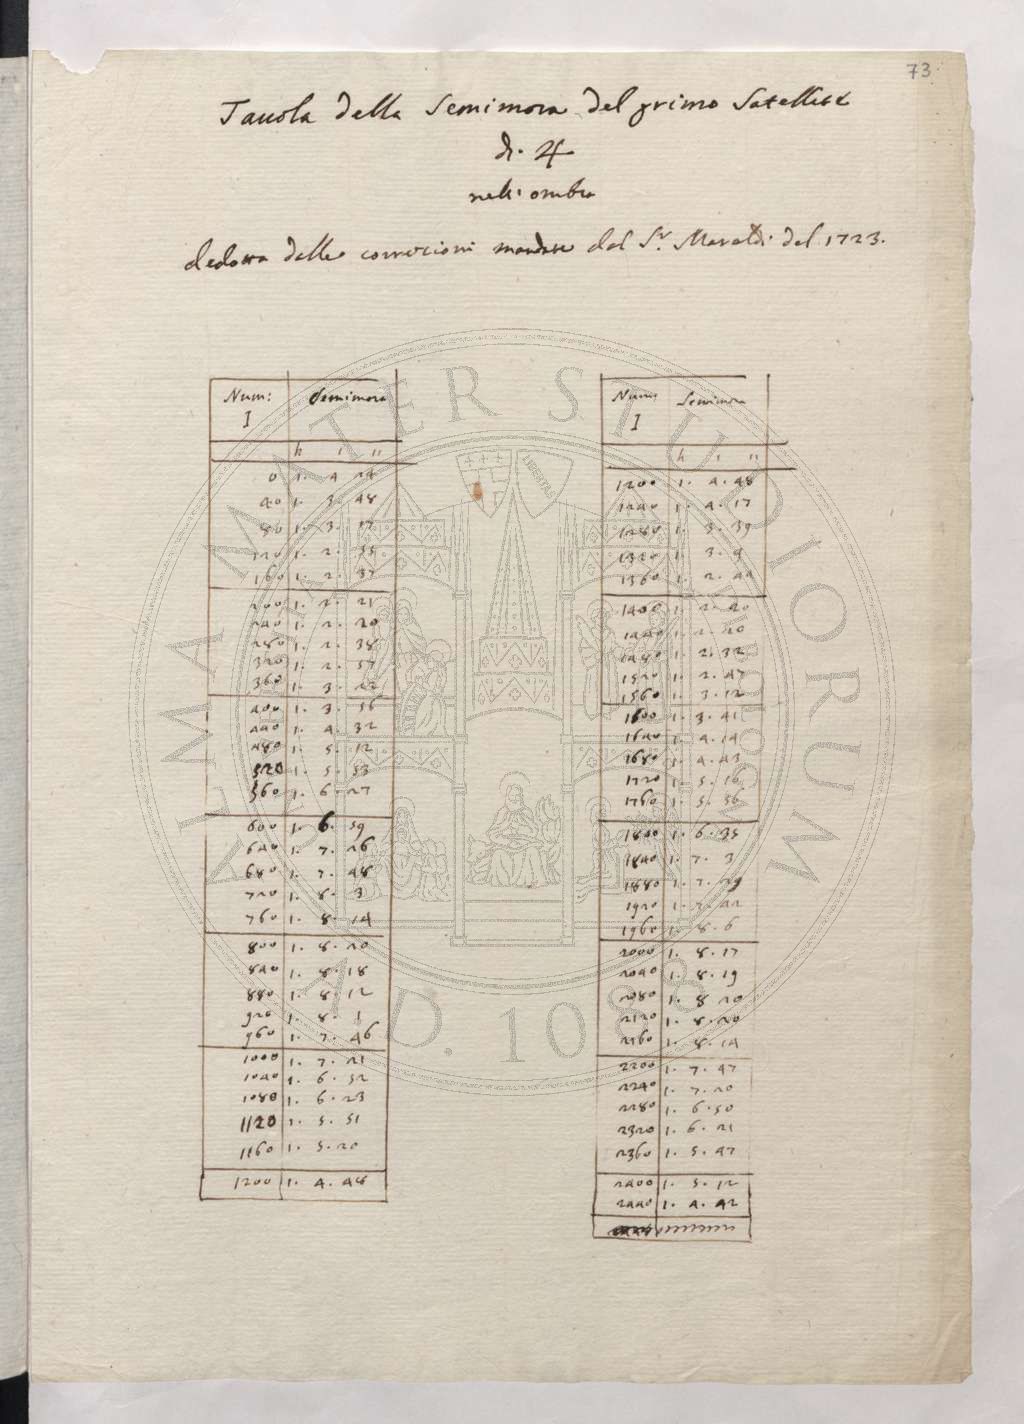 73
Tauola della Semimora del primo Satellite
di ♃
nell' ombra
dedotta dalle correzioni mandate dal Sr. Maraldi del 1723.
Num: Semimora
I
h ' ''
0 1. 4 24
40 1. 3. 48
80 1. 3. 17
120 1. 2. 55
160 1. 2. 37
200 1. 2. 21
240 1. 2. 20
280 1. 2. 38
320 1. 2. 57
360 1. 3. 22
400 1. 3. 56
440 1. 4. 32
480 1. 5. 12
520 1. 5. 53
560 1. 6. 27
600 1. 6. 59
640 1. 7. 26
680 1. 7. 48
720 1. 8. 3
760 1. 8. 14
800 1. 8. 20
840 1. 8. 18
880 1. 8. 12
920 1. 8. 1
960 1. 7. 46
1000 1. 7. 21
1040 1. 6. 52
1080 1. 6. 23
1120 1. 5. 51
1160 1. 5. 20
1200 1. 4. 48
Num: Semimora
I
h ' ''
1200 1. 4. 48
1240 1. 4. 17
1280 1. 3. 39
1320 1. 3. 9
1360 1. 2. 44
1400 1. 2. 20
1440 1. 2. 20
1480 1. 2. 32
1520 1. 2. 47
1560 1. 3. 12
1600 1. 3. 41
1640 1. 4. 14
1680 1. 4. 43
1720 1. 5. 16
1760 1. 5. 56
1800 1. 6. 35
1840 1. 7. 3
1880 1. 7. 29
1920 1. 7. 42
1960 1. 8. 6
2000 1. 8. 17
2040 1. 8. 19
2080 1. 8 20
2120 1. 8. 20
2160 1. 8. 14
2200 1. 7. 47
2240 1. 7. 20
2280 1. 6. 50
2320 1. 6. 21
2360 1. 5. 47
2400 1. 5. 12
2440 1. 4. 42
ALMA MATER STUDIORUM
A.D. 1088
LIBERTAS